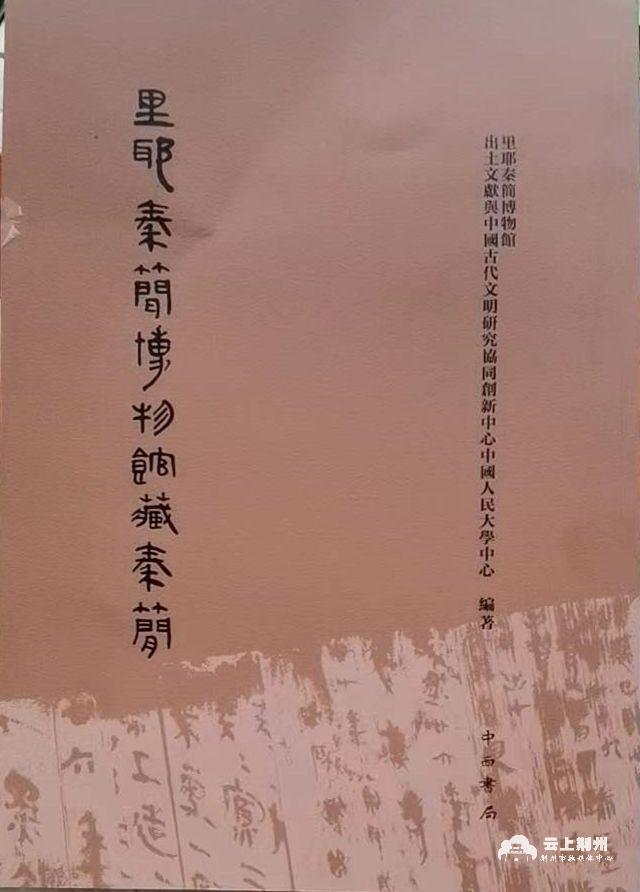 里耶秦簡博物館藏秦簡
里耶秦簡博物館
出土文獻與中國古代文明研究協同創新中心中國人民大學中心 編著
中西書局
云上荆州
荆州市融媒体中心